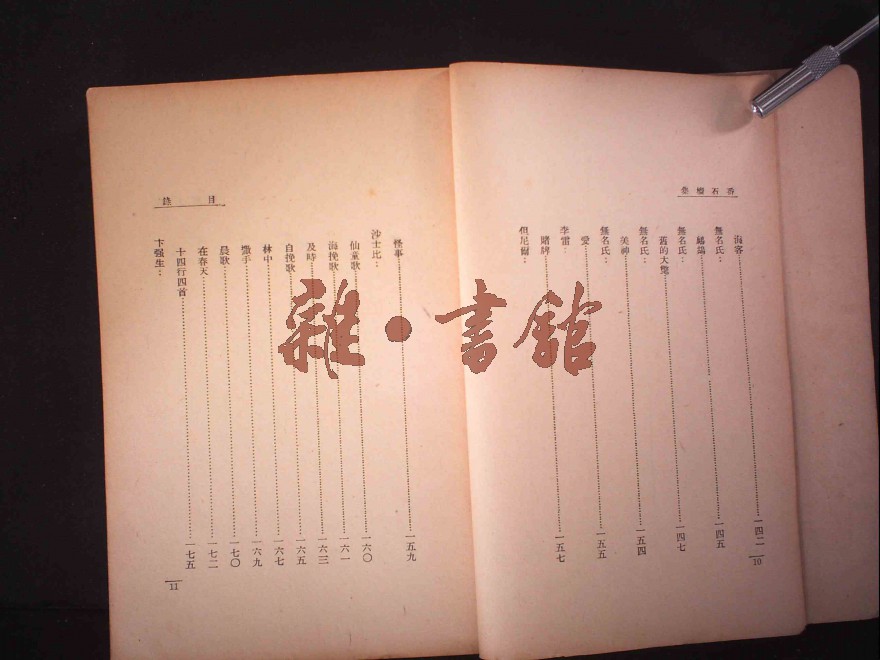 番石榴集
海客……一四二
無名氏：
……一四五
無名氏：
舊的大氅……一四七
無名氏：
美神……一五四
無名氏：
愛……一五五
李雷：
賭牌……一五七
但尼爾：
10
目錄
怪事……一五九
沙士比：
仙童歌……一六〇
海挽歌……一六一
及時……一六三
自挽歌……一六五
林中……一六七
撒手……一六九
晨歌……一七〇
在春天……一七二
十四行四首……一七五
卞强生：
11
雜·書館